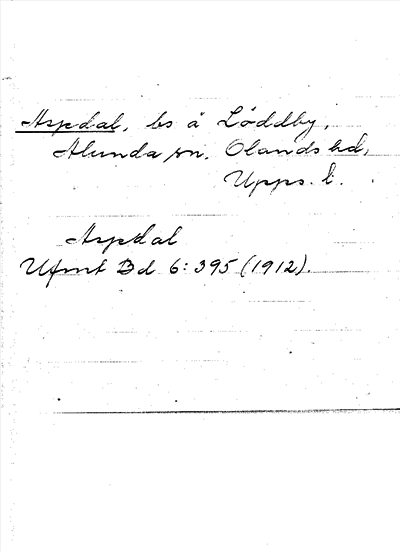 Aspdal, bs å Löddby,
Alunda sn, Olands hd,
Upps. l.
Aspdal
Ufmt Bd 6: 395 (1912).